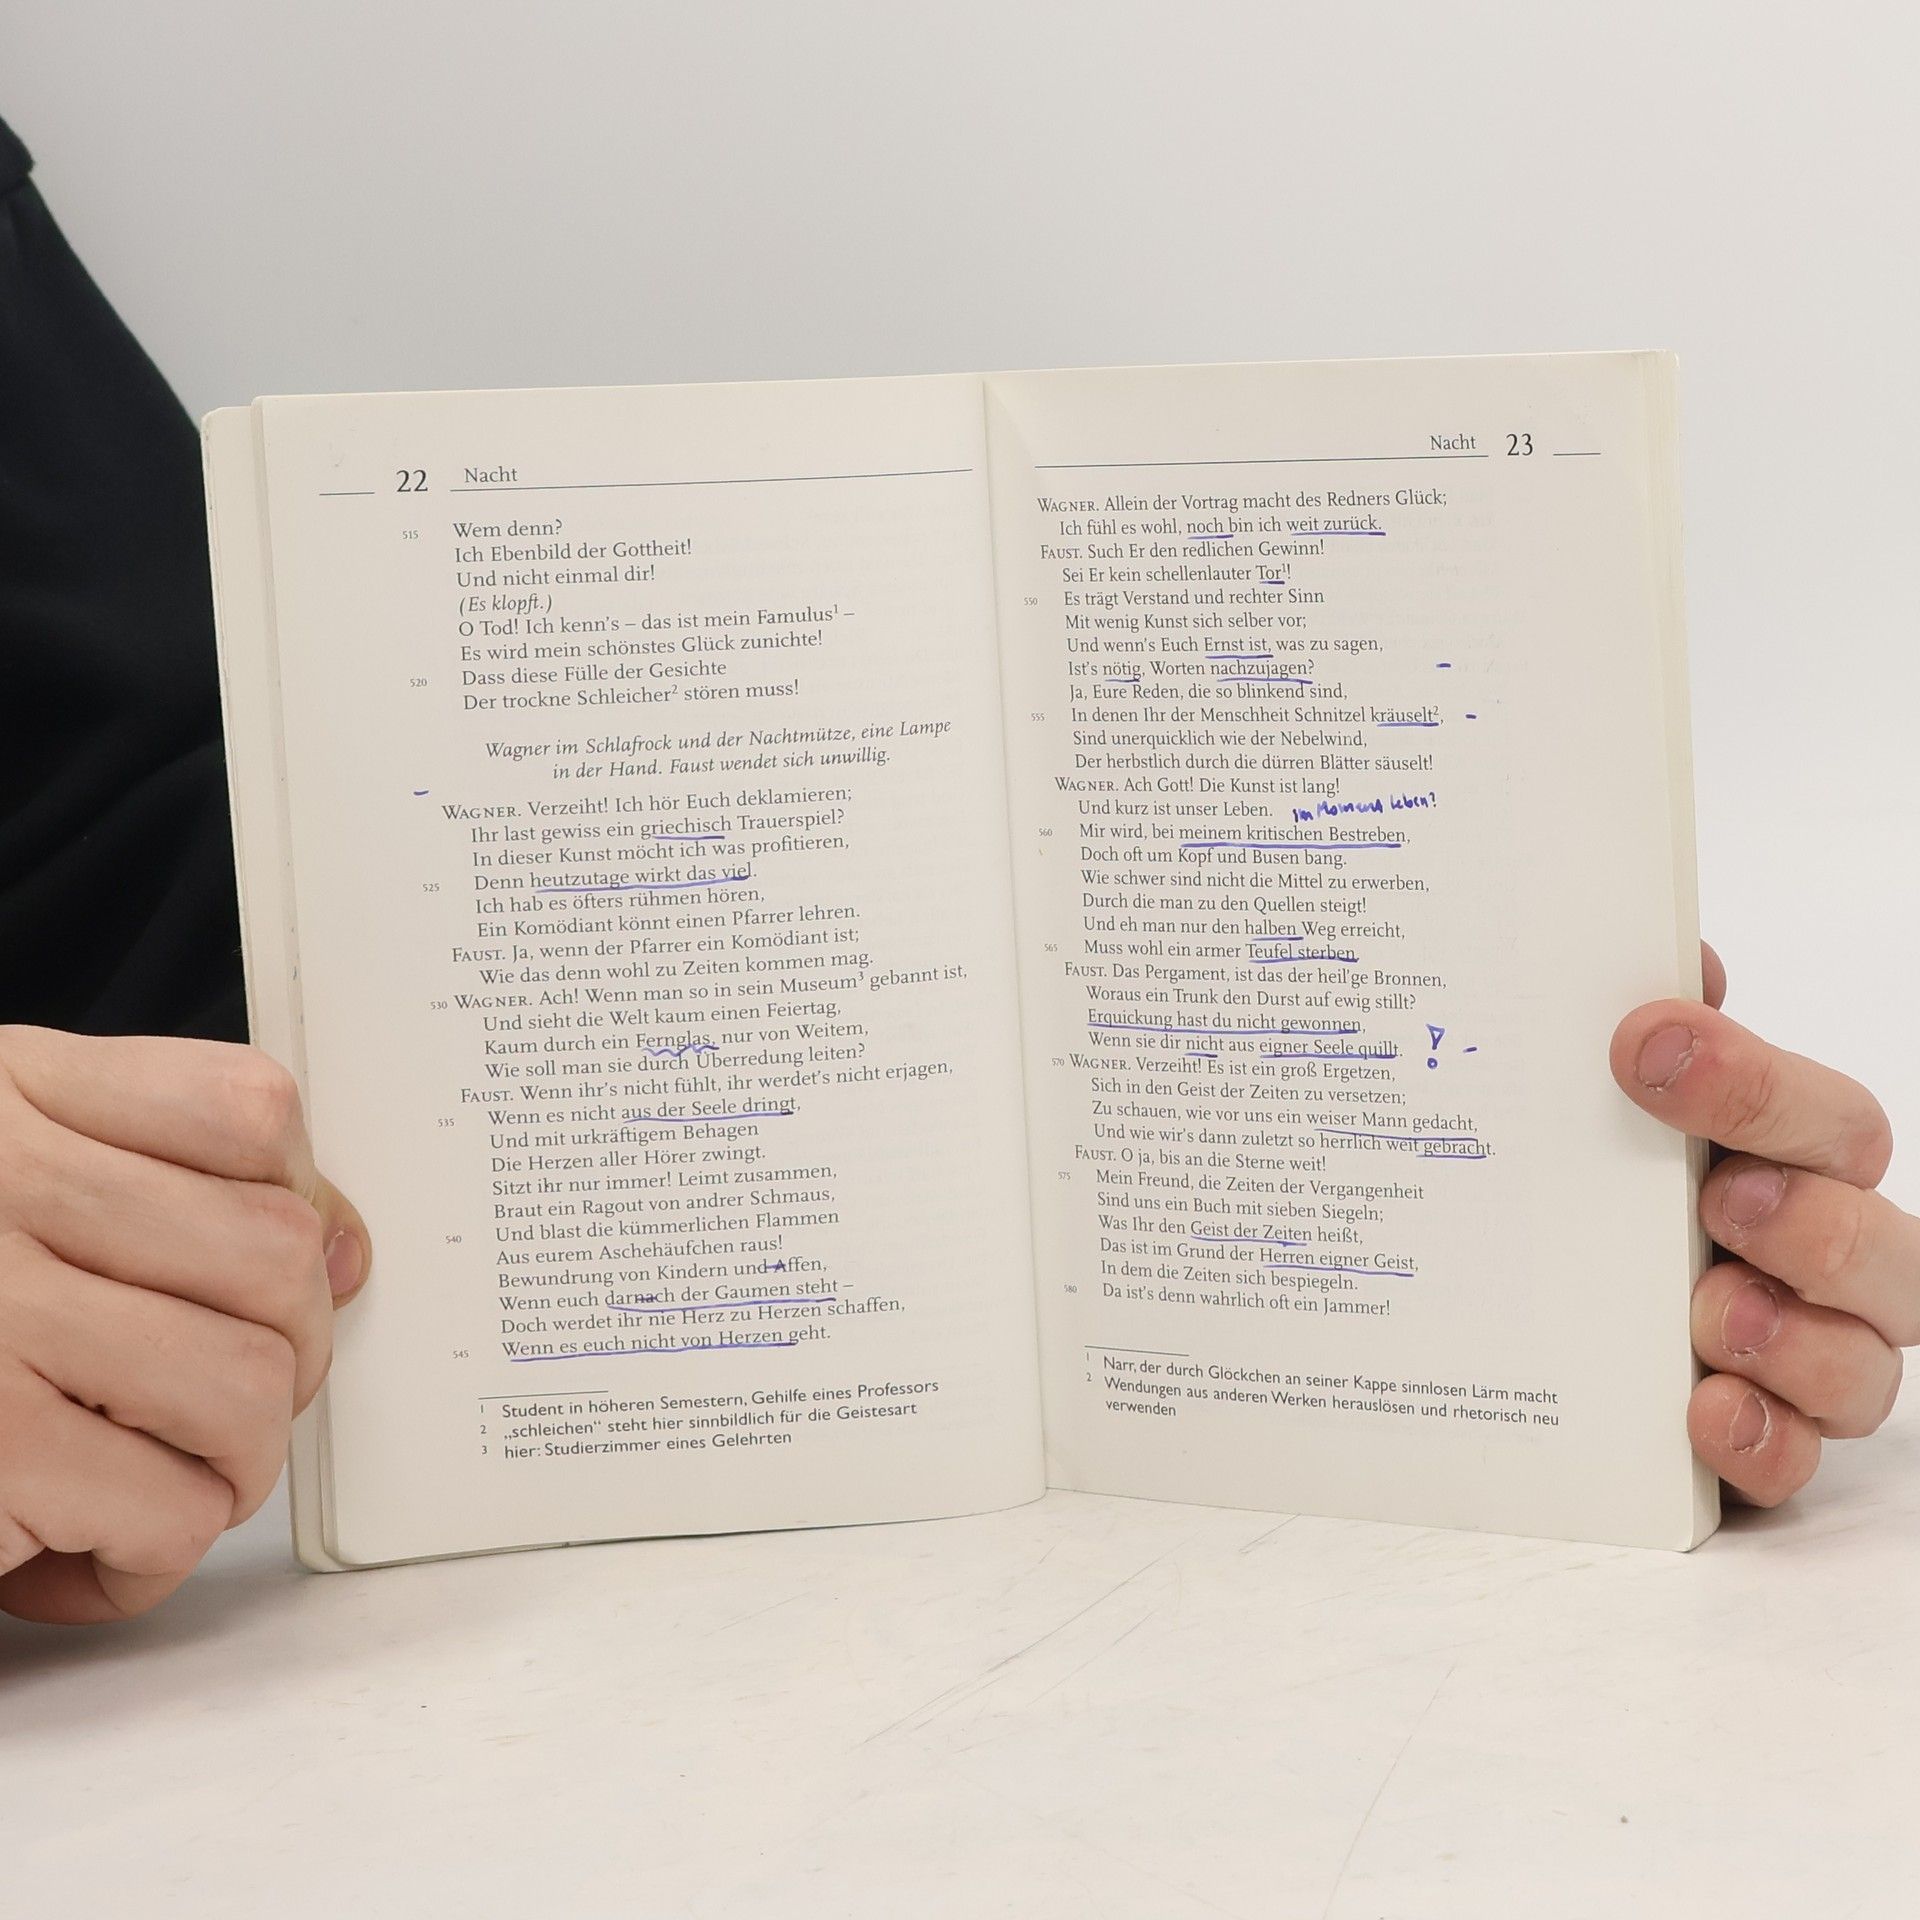 22 Nacht
515 Wem denn?
Ich Ebenbild der Gottheit!
Und nicht einmal dir!
(Es klopft.)
O Tod! Ich kenn's – das ist mein Famulus¹ –
Es wird mein schönstes Glück zunichte!
520 Dass diese Fülle der Gesichte
Der trockne Schleicher² stören muss!
Wagner im Schlafrock und der Nachtmütze, eine Lampe
in der Hand. Faust wendet sich unwillig.
WAGNER. Verzeiht! Ich hör Euch deklamieren;
Ihr last gewiss ein griechisch Trauerspiel?
In dieser Kunst möcht ich was profitieren,
525 Denn heutzutage wirkt das viel.
Ich hab es öfters rühmen hören,
Ein Komödiant könnt einen Pfarrer lehren.
FAUST. Ja, wenn der Pfarrer ein Komödiant ist;
Wie das denn wohl zu Zeiten kommen mag.
530 WAGNER. Ach! Wenn man so in sein Museum³ gebannt ist,
Und sieht die Welt kaum einen Feiertag,
Kaum durch ein Fernglas, nur von Weitem,
Wie soll man sie durch Überredung leiten?
FAUST. Wenn ihr's nicht fühlt, ihr werdet's nicht erjagen,
535 Wenn es nicht aus der Seele dringt,
Und mit urkräftigem Behagen
Die Herzen aller Hörer zwingt.
Sitzt ihr nur immer! Leimt zusammen,
Braut ein Ragout von andrer Schmaus,
540 Und blast die kümmerlichen Flammen
Aus eurem Aschehäufchen raus!
Bewundrung von Kindern und Affen,
Wenn euch darnach der Gaumen steht –
Doch werdet ihr nie Herz zu Herzen schaffen,
545 Wenn es euch nicht von Herzen geht.
1 Student in höheren Semestern, Gehilfe eines Professors
2 „schleichen“ steht hier sinnbildlich für die Geistesart
3 hier: Studierzimmer eines Gelehrten
Nacht 23
WAGNER. Allein der Vortrag macht des Redners Glück;
Ich fühl es wohl, noch bin ich weit zurück.
FAUST. Such Er den redlichen Gewinn!
Sei Er kein schellenlauter Tor¹!
550 Es trägt Verstand und rechter Sinn
Mit wenig Kunst sich selber vor;
Und wenn's Euch Ernst ist, was zu sagen,
Ist's nötig, Worten nachzujagen?
Ja, Eure Reden, die so blinkend sind,
555 In denen Ihr der Menschheit Schnitzel kräuselt²,
Sind unerquicklich wie der Nebelwind,
Der herbstlich durch die dürren Blätter säuselt!
WAGNER. Ach Gott! Die Kunst ist lang!
Und kurz ist unser Leben. im Moment leben?
560 Mir wird, bei meinem kritischen Bestreben,
Doch oft um Kopf und Busen bang.
Wie schwer sind nicht die Mittel zu erwerben,
Durch die man zu den Quellen steigt!
Und eh man nur den halben Weg erreicht,
565 Muss wohl ein armer Teufel sterben.
FAUST. Das Pergament, ist das der heil'ge Bronnen,
Woraus ein Trunk den Durst auf ewig stillt?
Erquickung hast du nicht gewonnen,
Wenn sie dir nicht aus eigner Seele quillt. !
570 WAGNER. Verzeiht! Es ist ein groß Ergetzen,
Sich in den Geist der Zeiten zu versetzen;
Zu schauen, wie vor uns ein weiser Mann gedacht,
Und wie wir's dann zuletzt so herrlich weit gebracht.
FAUST. O ja, bis an die Sterne weit!
575 Mein Freund, die Zeiten der Vergangenheit
Sind uns ein Buch mit sieben Siegeln;
Was Ihr den Geist der Zeiten heißt,
Das ist im Grund der Herren eigner Geist,
In dem die Zeiten sich bespiegeln.
580 Da ist's denn wahrlich oft ein Jammer!
1 Narr, der durch Glöckchen an seiner Kappe sinnlosen Lärm macht
2 Wendungen aus anderen Werken herauslösen und rhetorisch neu
verwenden